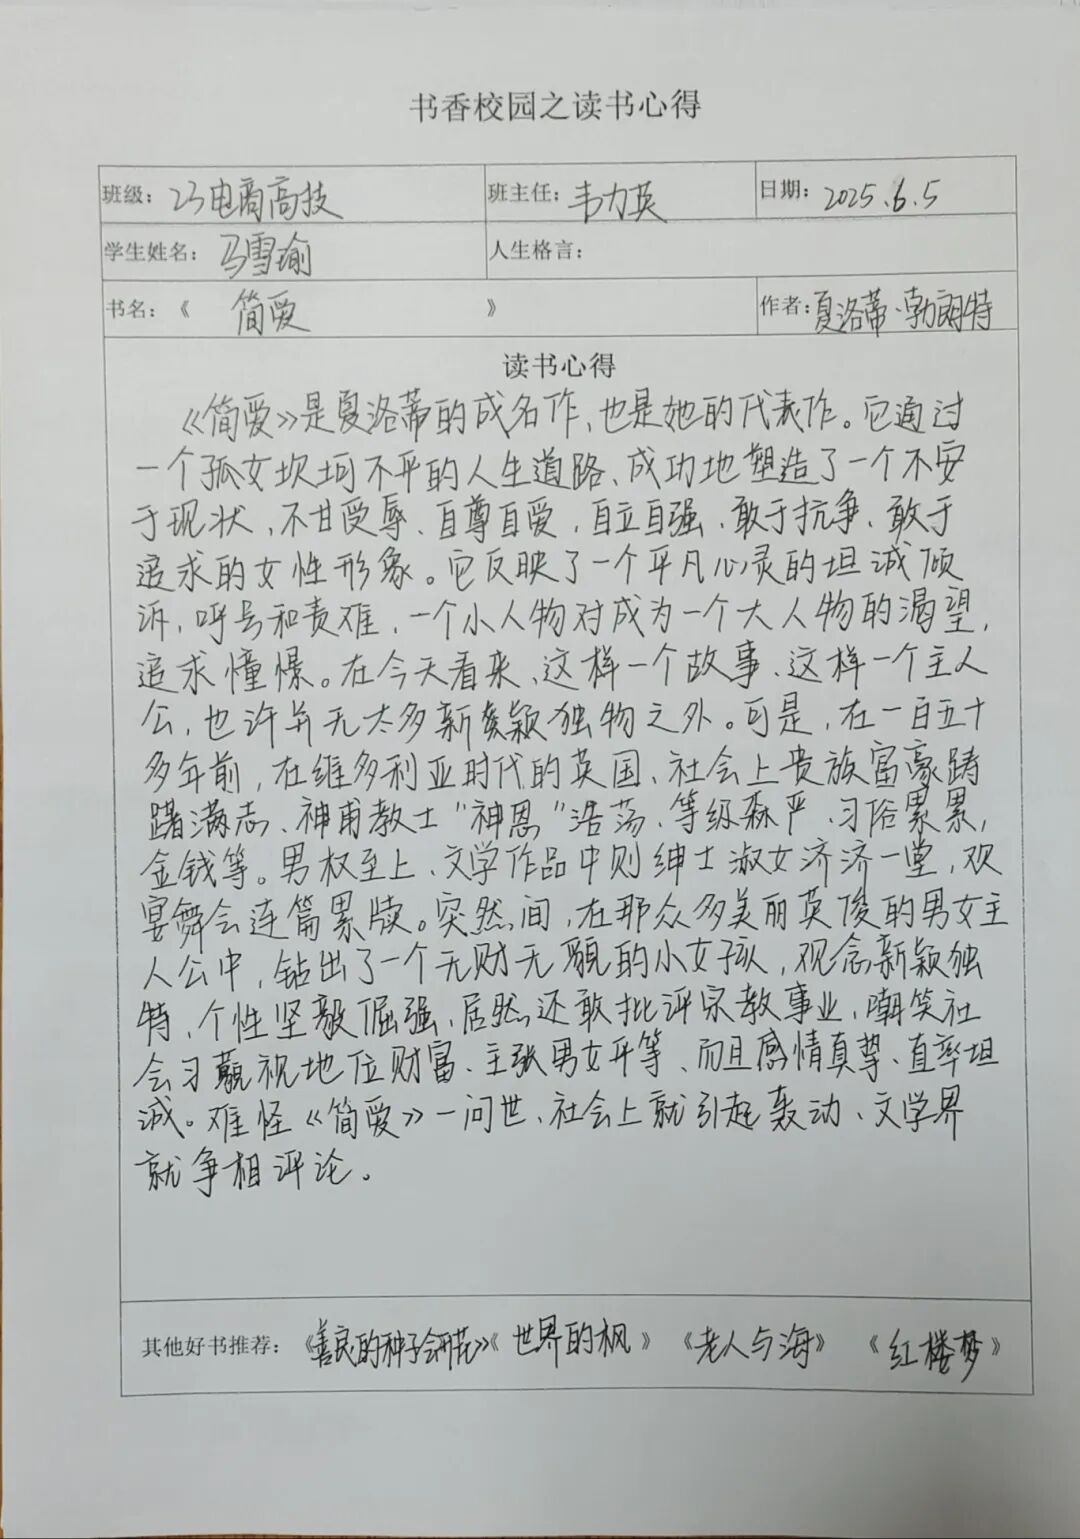 书香校园之读书心得
班级：23电商高技 班主任：韦力英 日期：2025.6.5
学生姓名：马雪瑜 人生格言：
书名：《 简爱 》 作者：夏洛蒂·勃朗特
读书心得
《简爱》是夏洛蒂的成名作、也是她的代表作。它通过
一个孤女坎坷不平的人生道路、成功地塑造了一个不安
于现状、不甘受辱、自尊自爱，自立自强、敢于抗争、敢于
追求的女性形象。它反映了一个平凡心灵的坦诚倾
诉，呼号和责难，一个小人物对成为一个大人物的渴望，
追求憧憬。在今天看来、这样一个故事、这样一个主人
公，也许并无太多新颖独物之外。可是，在一百五十
多年前，在维多利亚时代的英国、社会上贵族富豪踌
躇满志、神甫教士“神恩”浩荡、等级森严、习俗累累，
金钱等。男权至上、文学作品中则绅士淑女济济一堂，欢
宴舞会连篇累牍。突然间，在那众多美丽英俊的男女主
人公中，钻出了一个无财无貌的小女孩，观念新颖独
特，个性坚毅倔强、居然还敢批评宗教事业，嘲笑社
会习藐视地位财富、主张男女平等、而且感情真尊、直率坦
诚。难怪《简爱》一问世、社会上就引起轰动、文学界
就争相评论。
其他好书推荐：《善良的种子会开花》《世界的枫》《老人与海》《红楼梦》